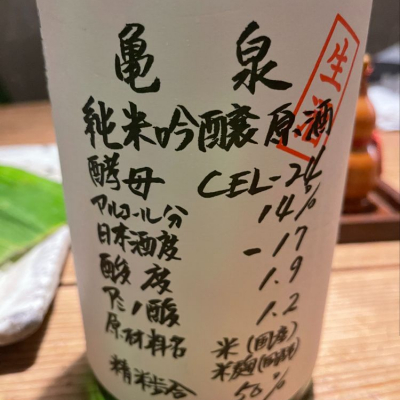 亀泉
生酒
純米吟醸原酒
酵母 CEL-24
アルコール分 14%
日本酒度 -17
酸度 1.9
アミノ酸 1.2
原材料名 米(国産)
米麹(国産)
精米歩合 50%